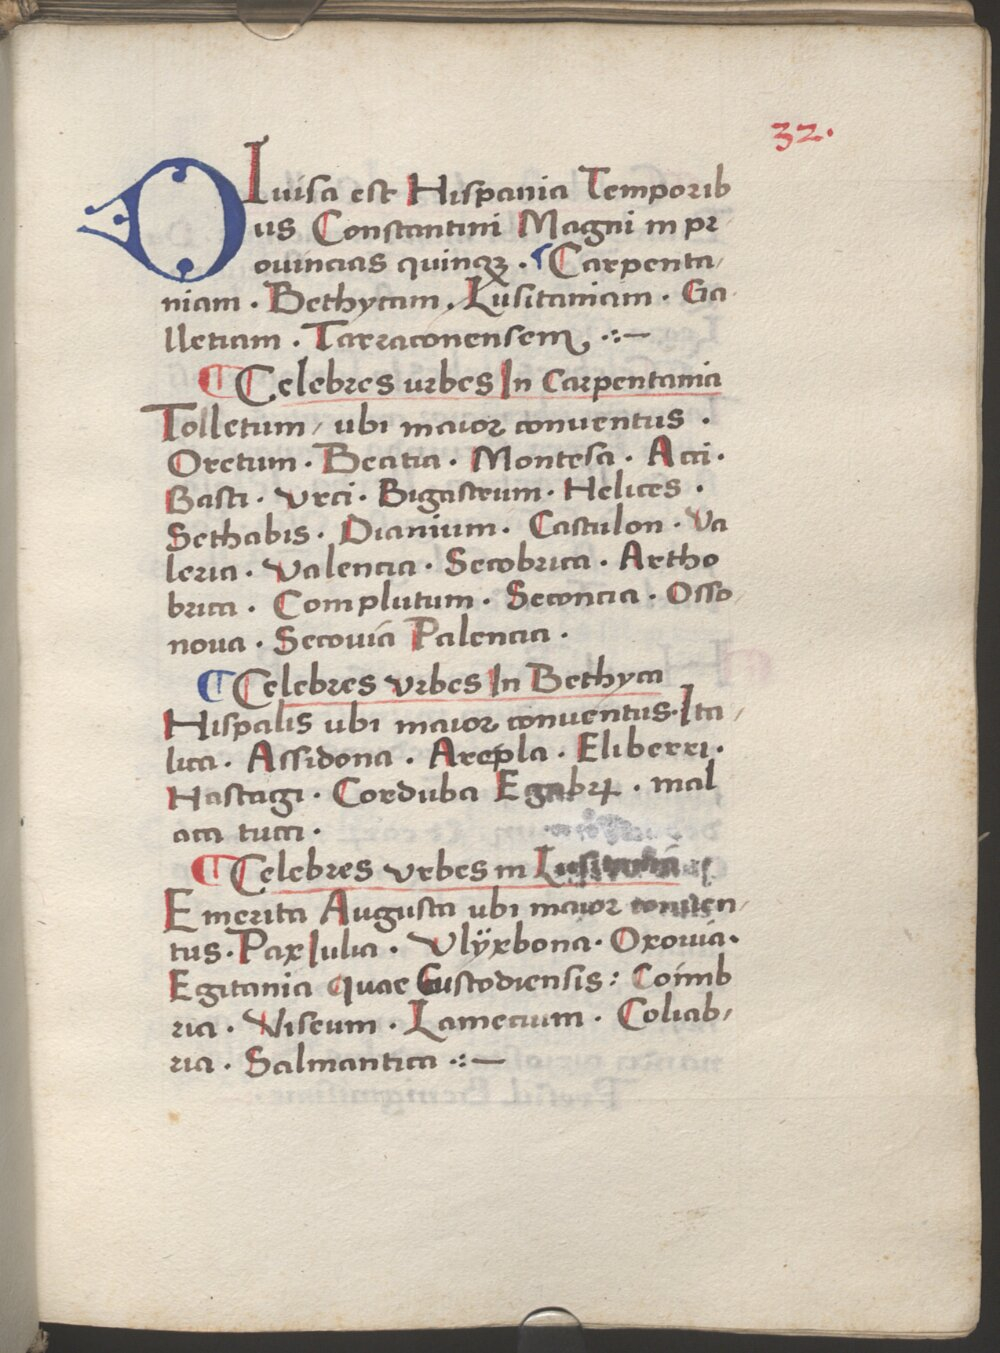 32.
DIuisa est Hispania Temporib
us Constantini Magni in pr
ouincias quinqꝫ. Carpenta/
niam. Bethycam. Lusitaniam. Ga
lleciam. Tarraconensem. :—
Celebres urbes In Carpentania
Tolletum/ ubi maior conuentus.
Oretum. Beatia. Montesa. Acci.
Basti. Vrci. Bigastrum. Helices.
Sethabis. Dianium. Castulon. Va
leria. Valencia. Secobrica. Artho
brica. Complutum. Seconcia. Osso/
noua. Secouia Palencia.
Celebres vrbes In Bethyca
Hispalis ubi maior conuentus. Ita/
lica. Assidona. Arepla. Eliberri.
Hastagi. Corduba Egabrꝝ. mal
aca tucci.
Celebres vrbes in Lusitania
Emerita Augusta ubi maior conuen/
tus. Pax Iulia. Vlÿxbona. Oxouia.
Egitania quae Gustodiensis: Coimb
ria. Viseum. Lamecum. Coliab/
ria. Salmantica .:—